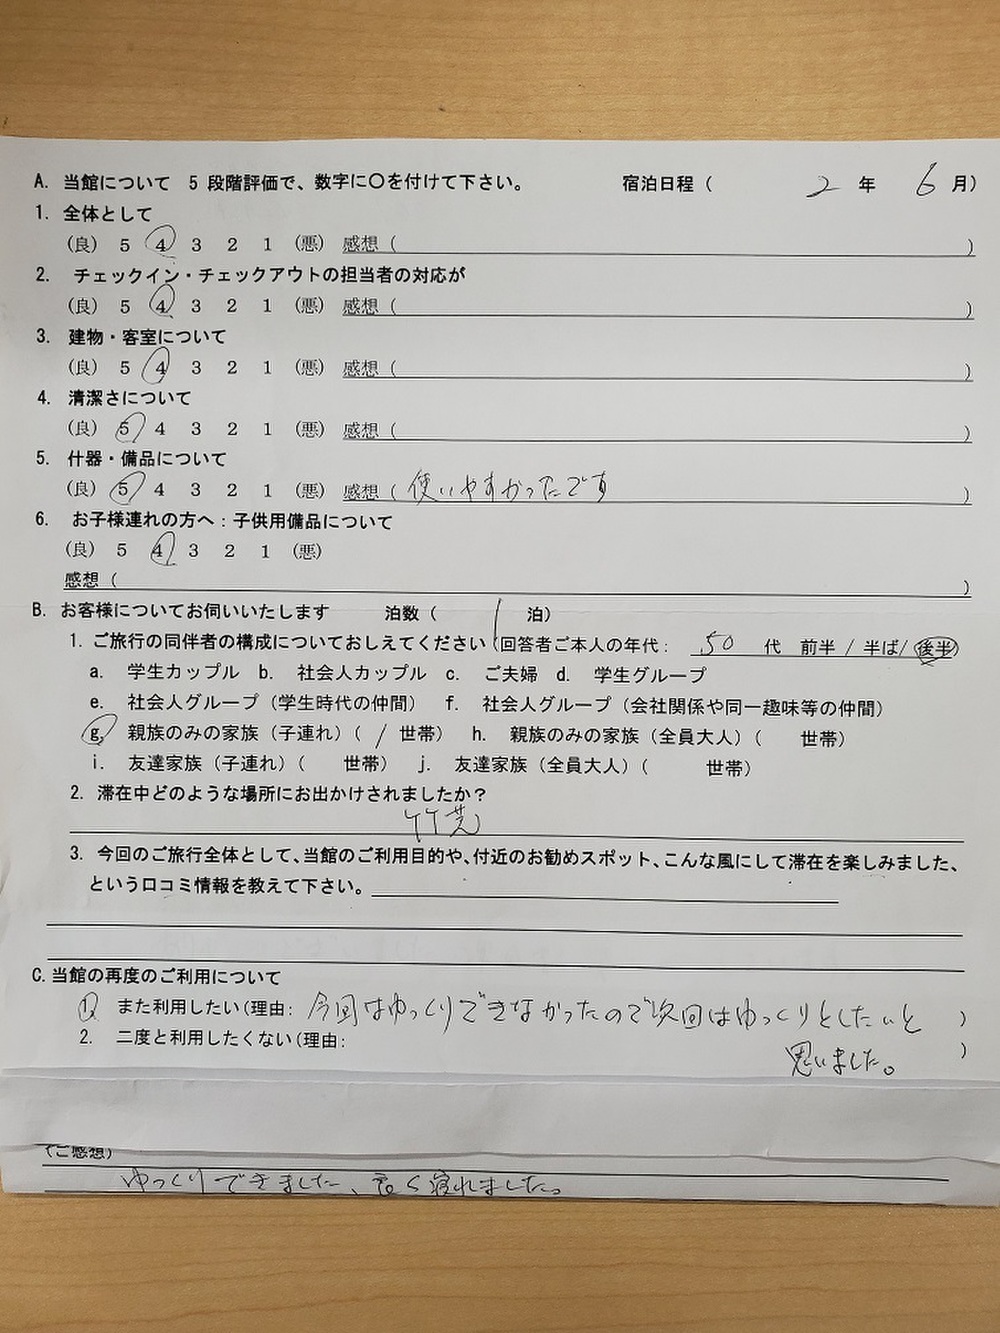 A. 当館について 5 段階評価で、数字に〇を付けて下さい。 宿泊日程 ( 2 年 6 月)
1. 全体として
(良) 5 4 3 2 1 (悪) 感想 ( )
2. チェックイン・チェックアウトの担当者の対応が
(良) 5 4 3 2 1 (悪) 感想 ( )
3. 建物・客室について
(良) 5 4 3 2 1 (悪) 感想 ( )
4. 清潔さについて
(良) 5 4 3 2 1 (悪) 感想 ( )
5. 什器・備品について
(良) 5 4 3 2 1 (悪) 感想 ( 使いやすかったです )
6. お子様連れの方へ：子供用備品について
(良) 5 4 3 2 1 (悪)
感想 ( )
B. お客様についてお伺いいたします 泊数 ( 1 泊)
1. ご旅行の同伴者の構成についておしえてください (回答者ご本人の年代： 50 代 前半 / 半ば / 後半)
a. 学生カップル b. 社会人カップル c. ご夫婦 d. 学生グループ
e. 社会人グループ (学生時代の仲間) f. 社会人グループ (会社関係や同一趣味等の仲間)
g. 親族のみの家族 (子連れ) ( 1 世帯) h. 親族のみの家族 (全員大人) ( 世帯)
i. 友達家族 (子連れ) ( 世帯) j. 友達家族 (全員大人) ( 世帯)
2. 滞在中どのような場所にお出かけされましたか？
竹芝
3. 今回のご旅行全体として、当館のご利用目的や、付近のお勧めスポット、こんな風にして滞在を楽しみました、
という口コミ情報を教えて下さい。
C. 当館の再度のご利用について
1. また利用したい (理由: 今回はゆっくりできなかったので次回はゆっくりとしたいと )
思いました。
2. 二度と利用したくない (理由: )
(ご感想)
ゆっくりできました、良く寝れました。